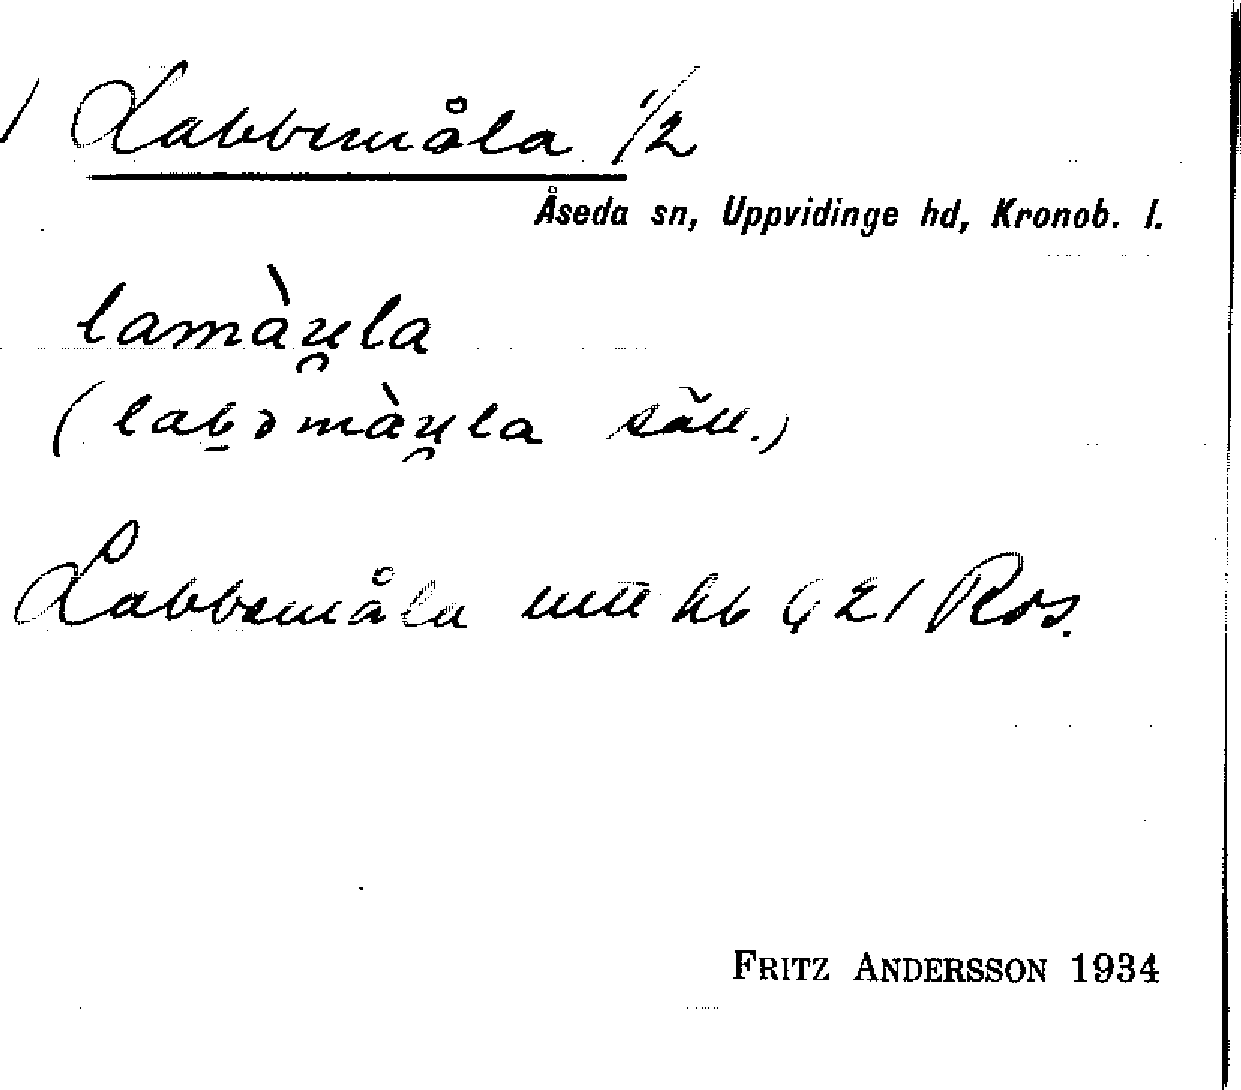 ) Labbemåla 1/2
Åseda sn, Uppvidinge hd, Kronob. l.
lamàu̯la
(lab̠əmàu̯la säll.)
Labbemåla hb G 21 Ros.
FRITZ ANDERSSON 1934